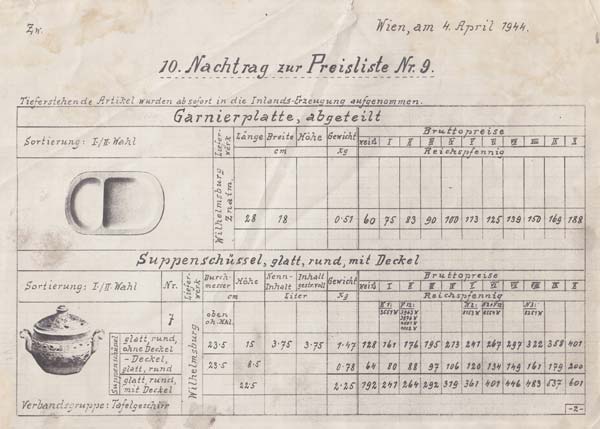 Zw.
Wien, am 4. April 1944.
10. Nachtrag zur Preisliste Nr. 9.
Tieferstehende Artikel wurden ab sofort in die Inlands-Erzeugung aufgenommen.
Garnierplatte, abgeteilt
Sortierung: I./II. Wahl
Liefer-werk
Länge Breite Höhe Gewicht
cm Kg
Bruttopreise
weiß I II III IV V VI VII VIII IX X
Reichspfennig
Wilhelmsburg Znaim.
28 18 0.51 60 75 83 90 100 113 125 139 150 169 188
Suppenschüssel, glatt, rund, mit Deckel
Sortierung: I./II. Wahl
Nr.
Liefer-werk
Durch-messer Höhe Nenn-Inhalt Inhalt gestr. voll Gewicht
cm Liter Kg
Bruttopreise
weiß I II III IV V VI VII VIII IX X
Reichspfennig
7
Wilhelmsburg
oben
Suppenschüssel
glatt, rund, ohne Deckel 23.5 15 3.75 3.75 1.47 128 161 176 195 213 241 267 297 322 358 401
- Deckel, glatt, rund 23.5 8.5 0.78 64 80 88 97 106 120 134 149 161 179 200
glatt, rund, mit Deckel 22.5 2.25 192 241 264 292 319 361 401 446 483 537 601
Verbandsgruppe: Tafelgeschirr
-2-